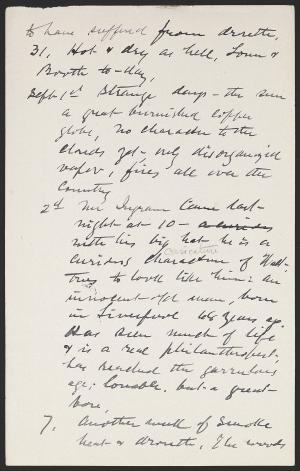 to have suffered from drouth,
31, Hot & dry as hell, Town &
Booth to-day,
Sept 1st Strange days – the sun
a great burnished copper
globe, no character to the
clouds yet – only disorganized
vapor, fires all over the
country
2d Mr Ingram came last
night at 10 – a curious
with his big hat he is a
caricature
curious character of Walt –
trys to look like him: an
innocent old man, born
in Liverpool 68 years ago.
Has seen much of life
& is a real philanthropist;
has reached the garrulous
age; lovable, but a great
bore,
7, Another week of smoke
heat & drouth, The woods